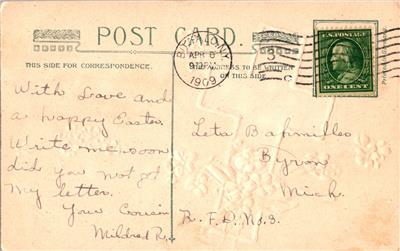 POST CARD.
THIS SIDE FOR CORRESPONDENCE.
ADDRESS TO BE WRITTEN
ON THIS SIDE.
APR 8
1909
3
C
U.S. POSTAGE
ONE CENT
With Love and
a happy Easter.
Write me soon
did you not get
my letter.
Your Cousin
Mildred R.
Leta
Byron
Mich.
R. F. D. No. 3.